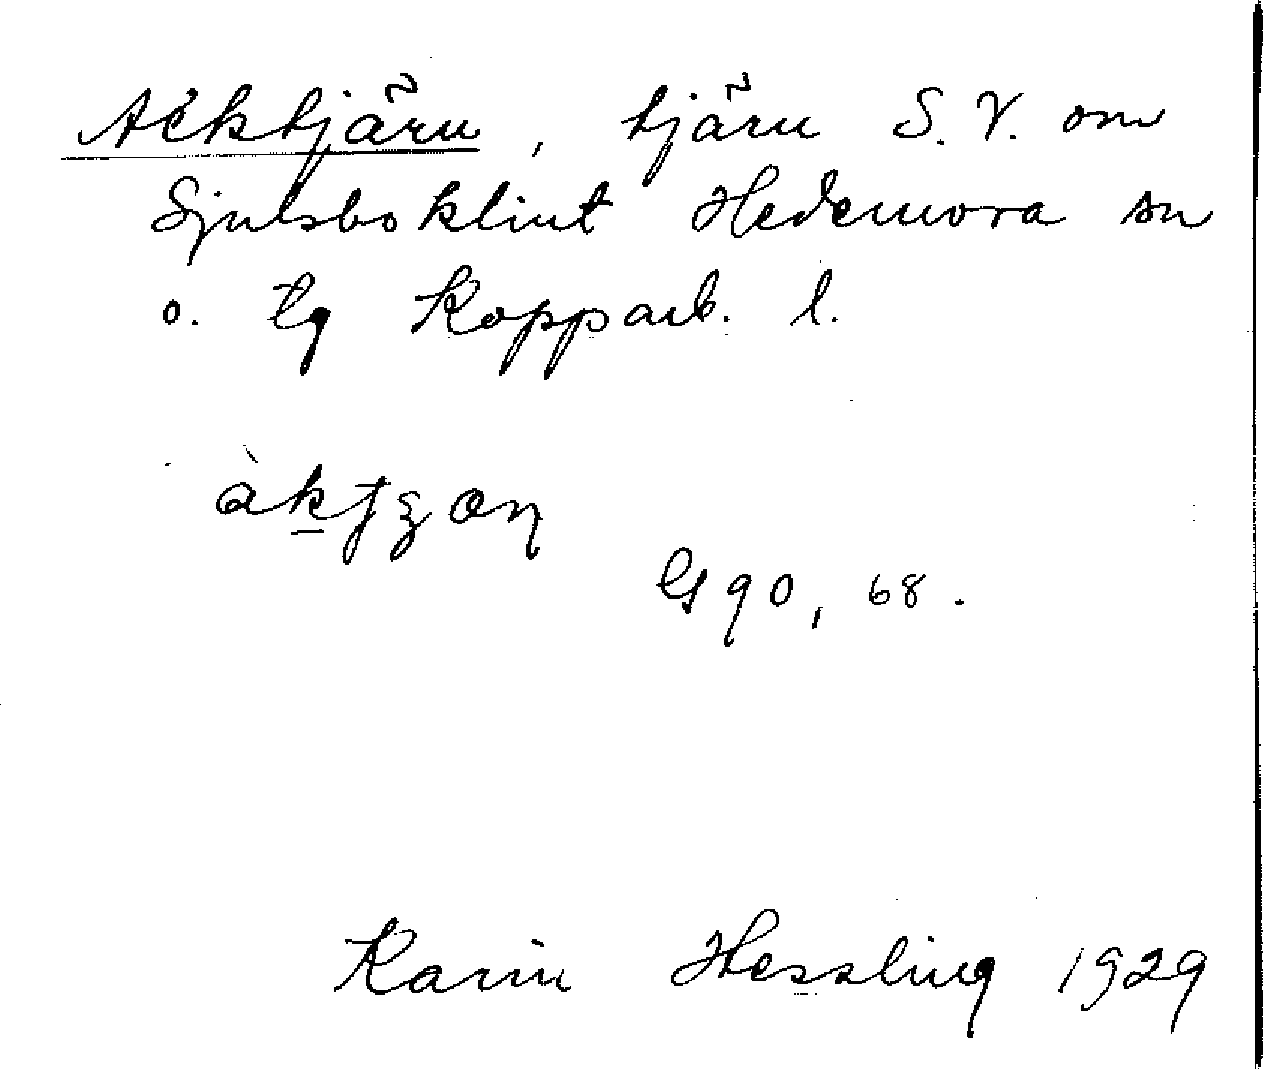 Acktjärn, tjärn S.V. om
Sjulsboklint Hedemora sn
o. tg Kopparb. l.
Gs 90, 68.
Karin Hessling 1929